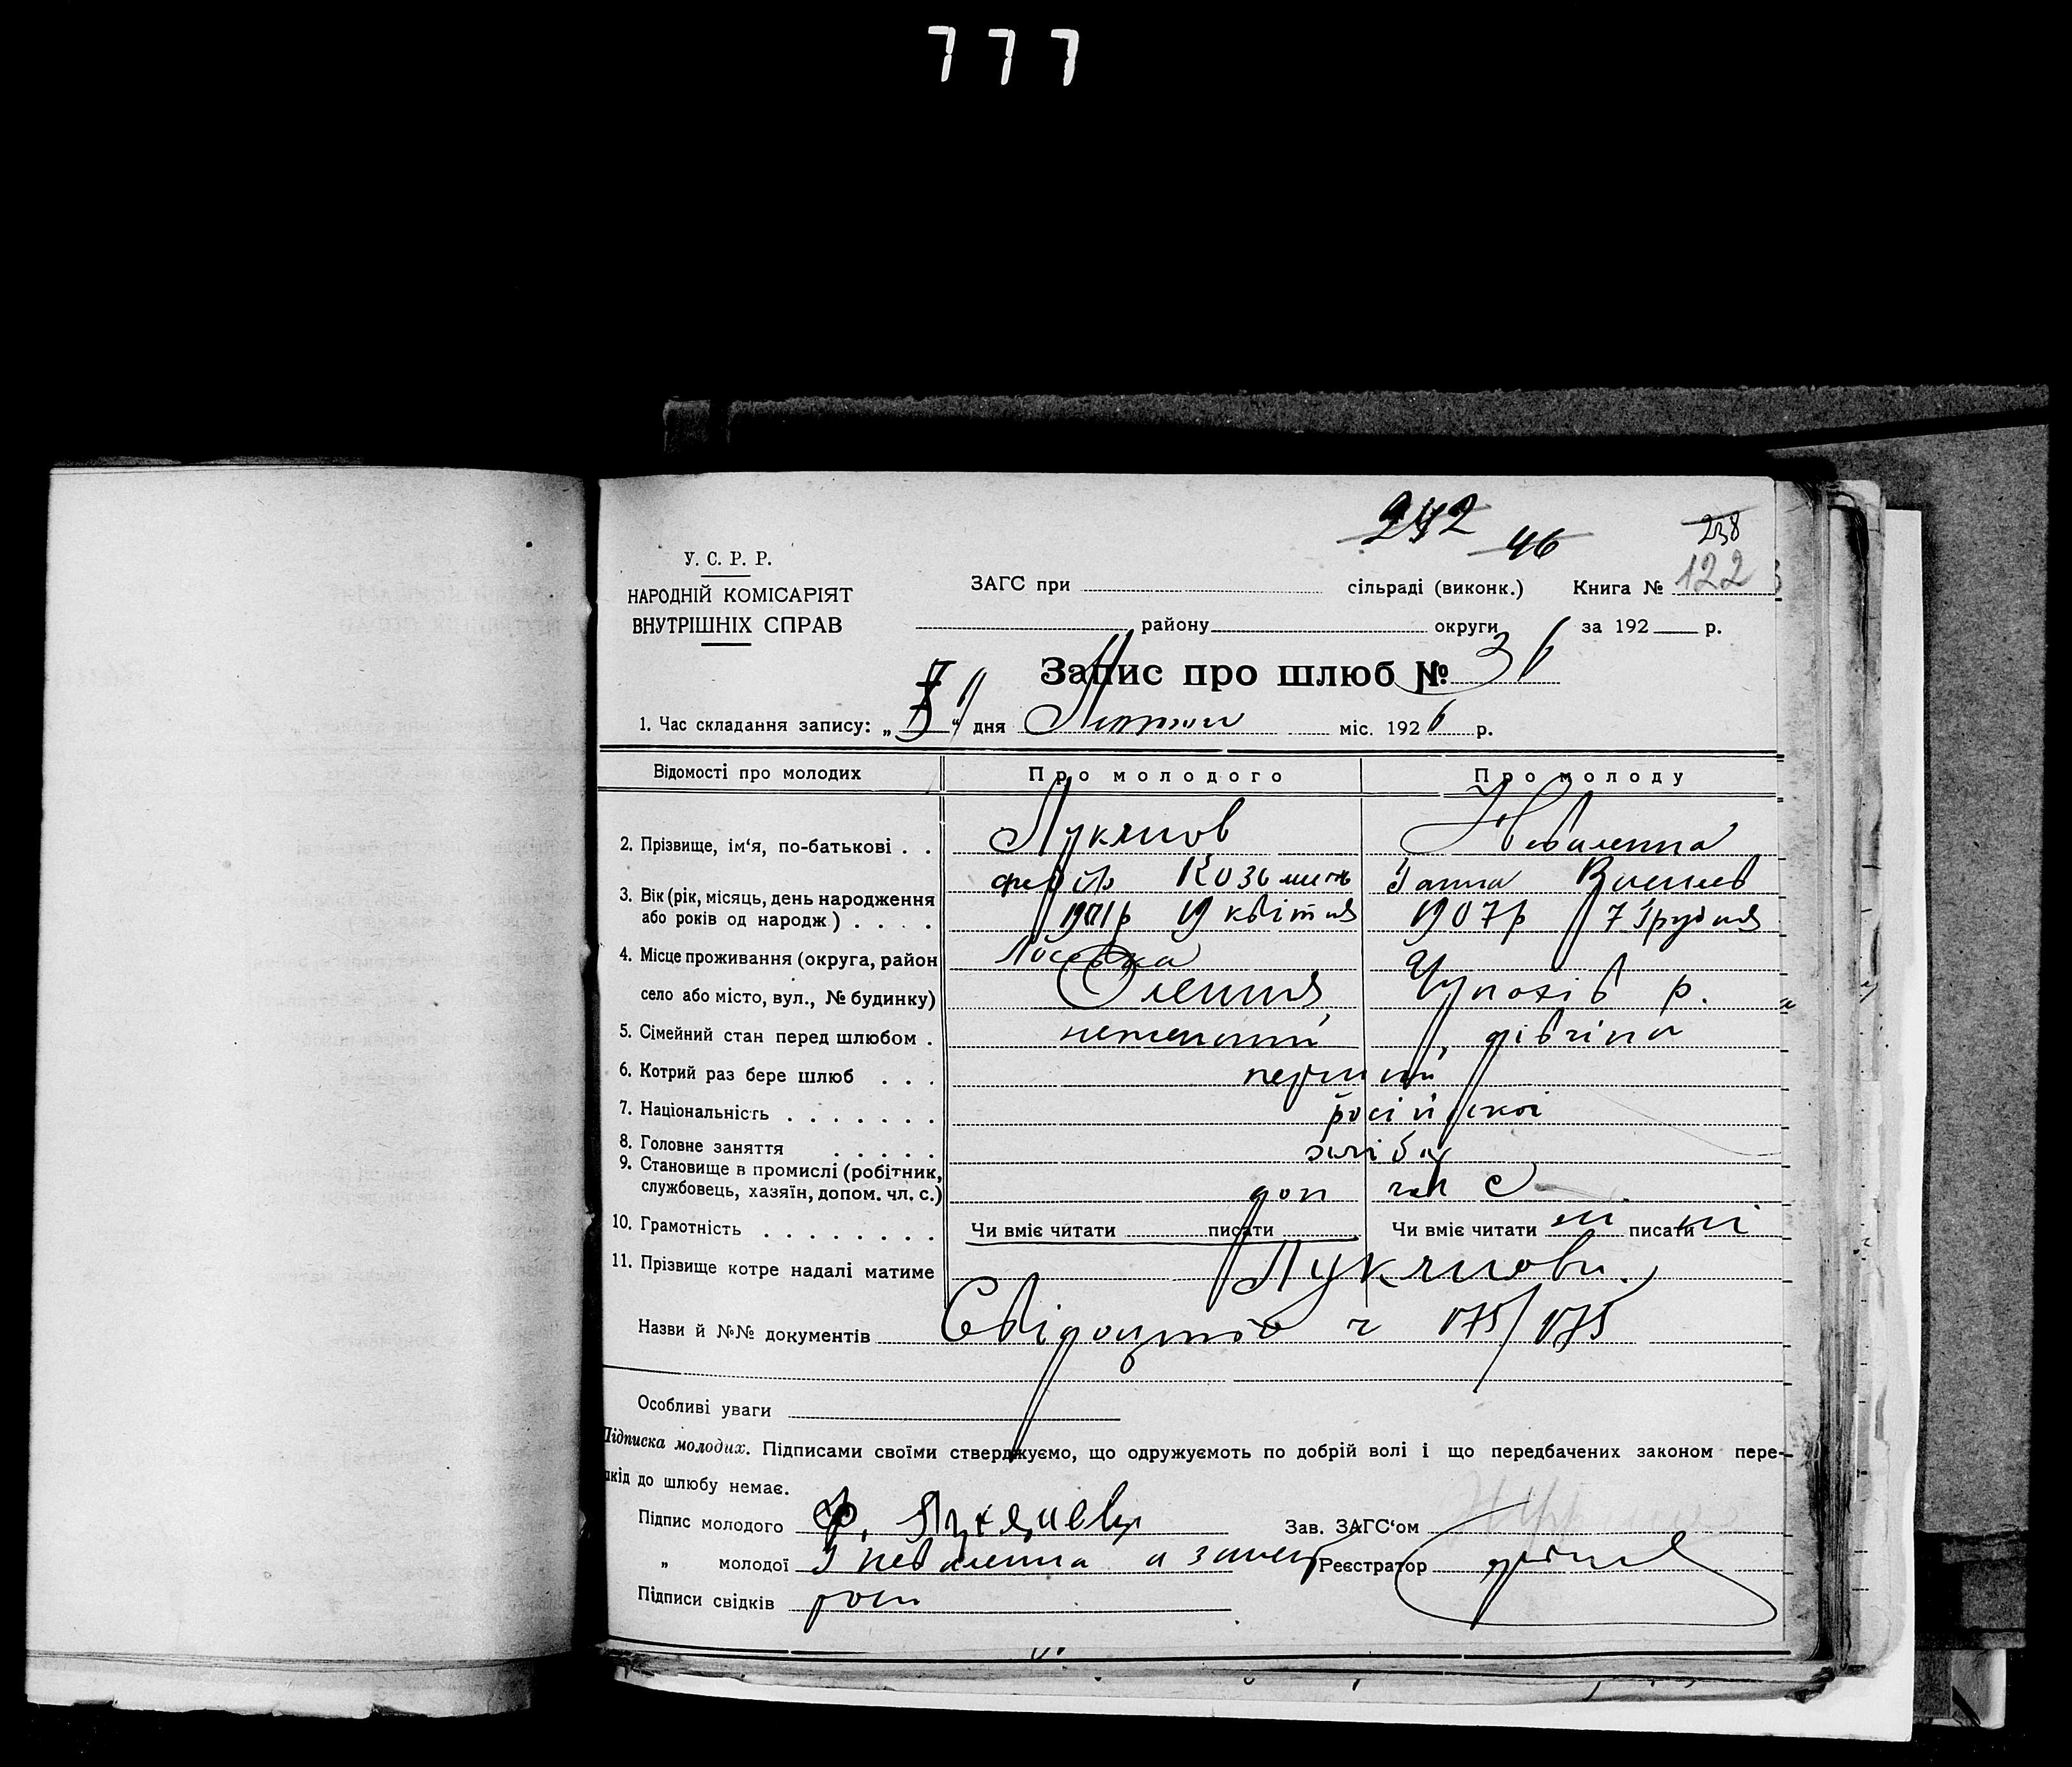 777
242 46 238
У. С. Р. Р.
НАРОДНІЙ КОМІСАРІЯТ
ВНУТРІШНІХ СПРАВ
ЗАГС при сільраді (виконк.) Книга № 122
району округи за 192 р.
Запис про шлюб № 36
1. Час складання запису: „ “ дня Лютого міс. 1926 р.
Відомості про молодих Про молодого Про молоду
2. Прізвище, ім‘я, по-батькові . . Лукянов
Козьмич Ганна Васильев
3. Вік (рік, місяць, день народження
або років од народж) . . . . 1901р 19 квітня 1907р 7 Грудня
4. Місце проживання (округа, район Лосевка
село або місто, вул., № будинку) р.
5. Сімейний стан перед шлюбом . нежонатий дівчина
6. Котрий раз бере шлюб . . . перший
7. Національність . . . . . . . російської
8. Головне заняття . . . . . хлібор
9. Становище в промислі (робітник,
службовець, хазяїн, допом. чл. с.) доп чл с
10. Грамотність . . . . . . . . Чи вміє читати писати Чи вміє читати ні писати ні
11. Прізвище котре надалі матиме Лукянови.
Назви й №№ документів Свідоцтво ч 175/175
Особливі уваги
Підписка молодих. Підписами своїми стверджуємо, що одружуємоть по добрій волі і що передбачених законом пере-
шкід до шлюбу немає.
Підпис молодого Ф. Зав. ЗАГС‘ом
„ молодої Реєстратор
Підписи свідків